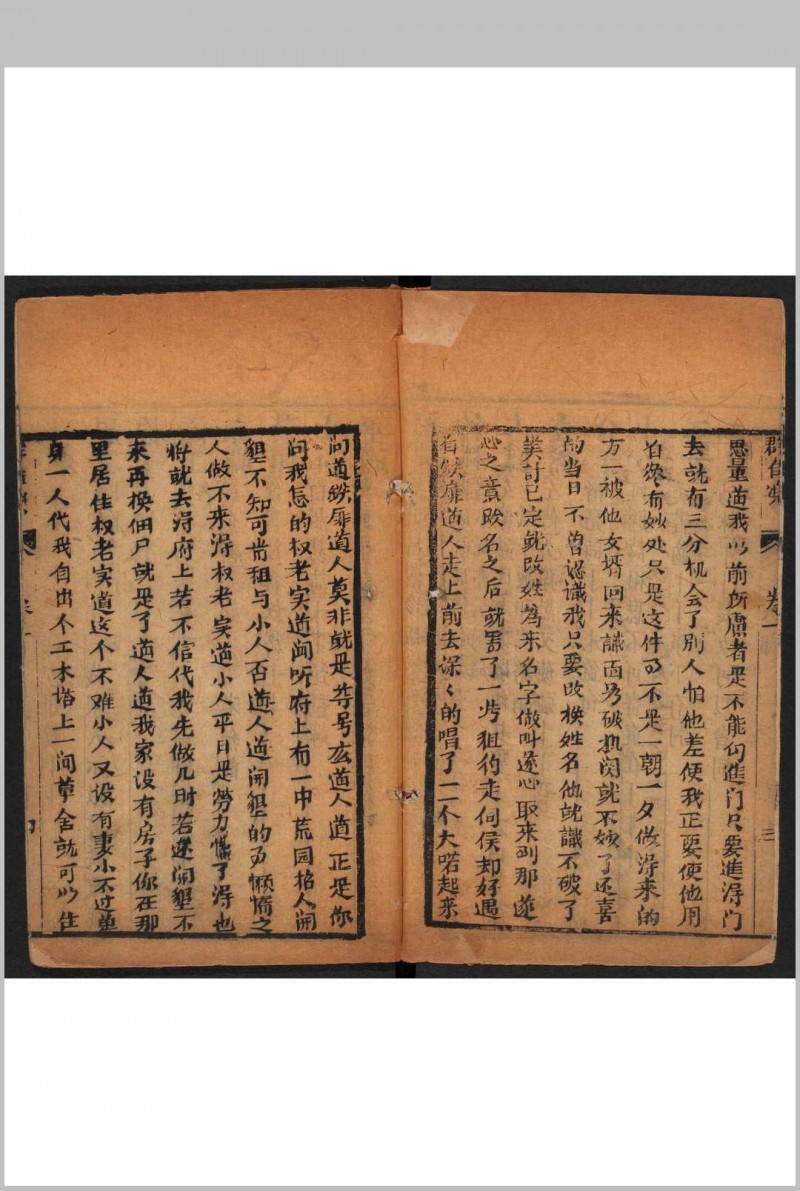 思量道我以前所慮者是不能勾進门只要進淂门
去就有三分机会了别人怕他差使我正要使他用
的欲有妙处只是这件事不是一朝一夕做淂来的
万一被他女壻回来識面另破执閃就不妙了还喜
的当日不曾認識我只要改换姓名他就識不破了
美計已定就改姓為来名字做叫遂心取来到那遂
心之意改名之后就寫了一片租约走伺侯却好遇
着铁扉道人走上前去深〻的唱了一个大喏起来
问道鉄扉道人莫非就是尊号玄道人道正是你
问我怎的权老实道闻听府上有一中荒园招人開
墾不知可肯租与小人否道人道開墾的另懒惰之
人做不来淂权老实道小人平日是勞力慣了淂也
将就去淂府上若不信代我先做几时若遂開墾不
来再换佃户就是了道人道我家没有房子你在那
里居住权老实道这个不难小人又没有妻小不过单
身一人代我自出个工木搭上一间草舍就可以住
卷一
三